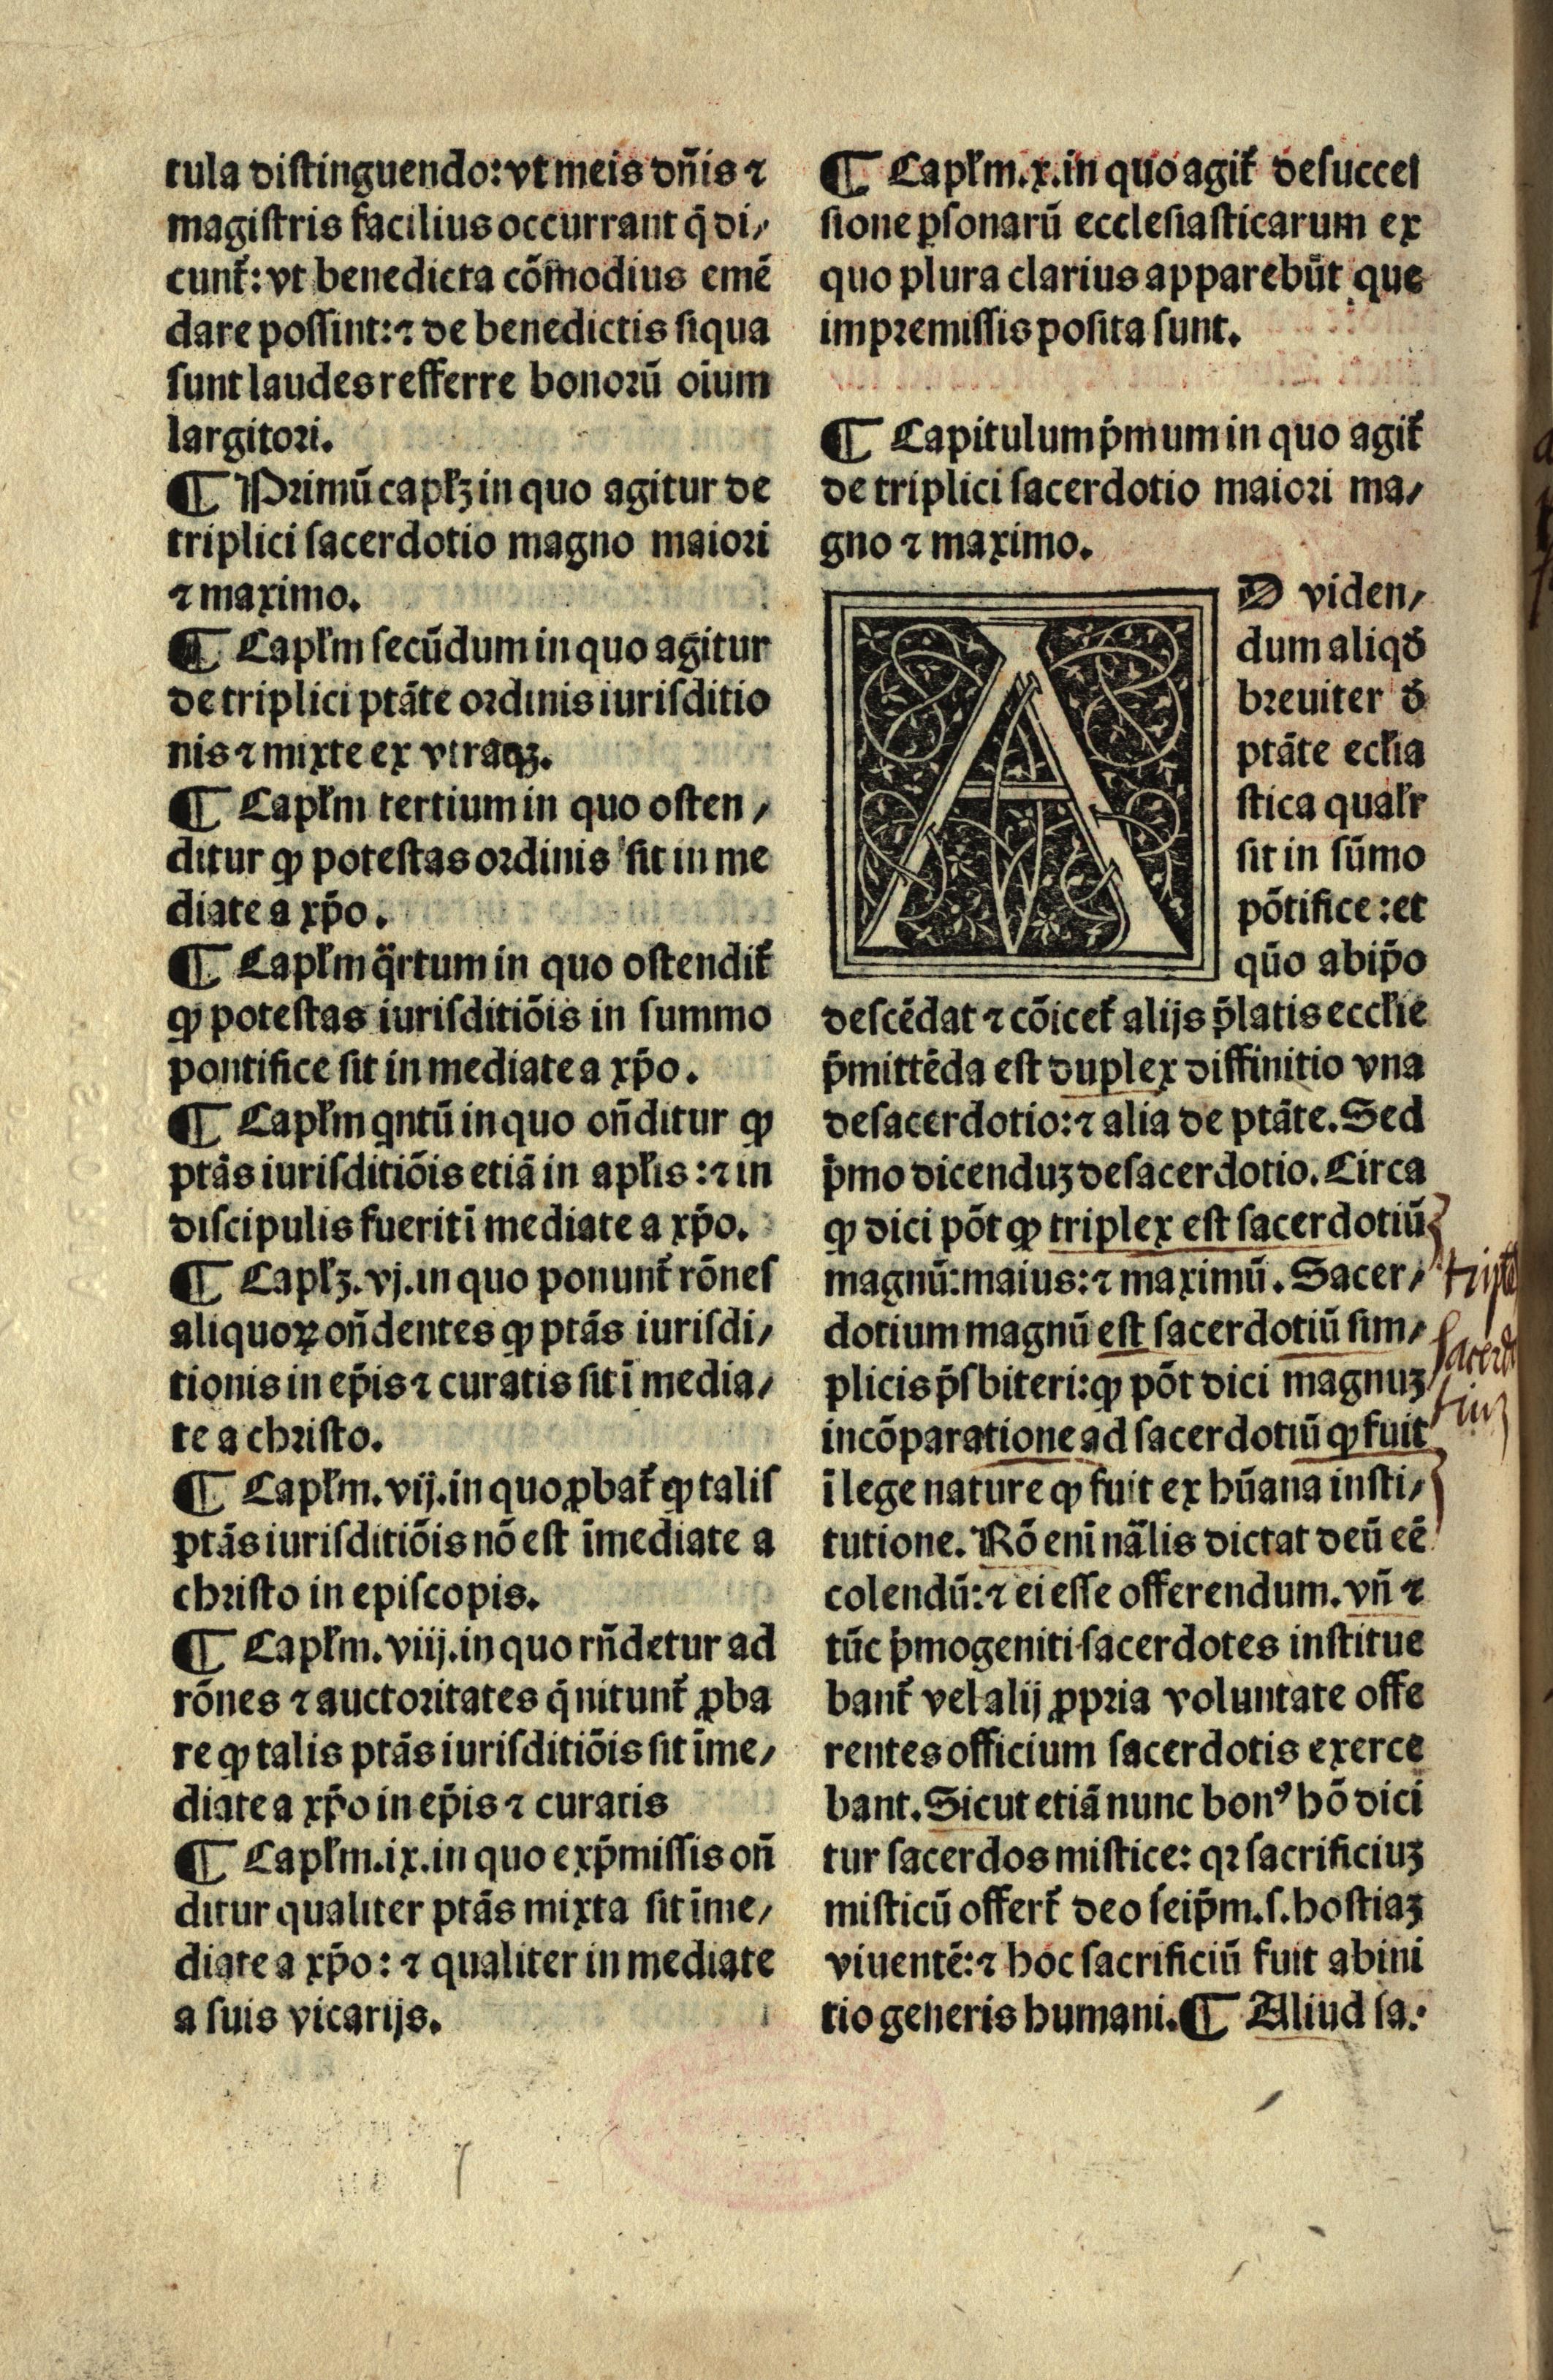 tula diſtinguendo: vt meis dn̄is ⁊
magiſtris facilius occurrant q̄ di⸗
cunt᷑: vt benedicta cōmodius emē
dare poſſint: ⁊ de benedictis ſi qua
ſunt laudes refferre bonoꝛū oīum
largitoꝛi.
¶ Pꝛimū capl̓ꝫ in quo agitur de
triplici ſacerdotio magno maioꝛi
⁊ maximo.
¶ Capl̓m ſecūdum in quo agitur
de triplici ptāte oꝛdinis iuriſditio
nis ⁊ mixte ex vtraqꝫ.
¶ Capl̓m tertium in quo oſten⸗
ditur ꝙ poteſtas oꝛdinis ſit in me
diate a xp̄o.
¶ Capl̓m q̈rtum in quo oſtendit᷑
ꝙ poteſtas iuriſditiōis in ſummo
pontifice ſit in mediate a xp̄o.
¶ Capl̓m qntū in quo on̄ditur ꝙ
ptās iuriſditiōis etiā in apl̓is: ⁊ in
diſcipulis fuerit ī mediate a xp̄o.
¶ Capl̓ꝫ. vj. in quo ponunt᷑ rōneſ
aliquoꝝ on̄dentes ꝙ ptās iuriſdi⸗
tionis in ep̄is ⁊ curatis ſit ī media⸗
te a chꝛiſto.
¶ Capl̓m. vij. in quo ꝓbat᷑ ꝙ taliſ
ptās iuriſditiōis nō eſt īmediate a
chꝛiſto in epiſcopis.
¶ Capl̓m. viij. in quo rn̄detur ad
rōnes ⁊ auctoꝛitates q̄ nitunt᷑ ꝓba
re ꝙ talis ptās iuriſditiōis ſit īme⸗
diate a xp̄o in ep̄is ⁊ curatis
¶ Capl̓m. ix. in quo ex p̄miſſis on̄
ditur qualiter ptās mixta ſit īme⸗
diate a xp̄o: ⁊ qualiter in mediate
a ſuis vicarijs.
¶ Capl̓m. x. in quo agit᷑ de ſucceſ
ſione ꝑſonarū eccleſiaſticarum ex
quo plura clarius apparebūt que
im pꝛemiſſis poſita ſunt.
¶ Capitulum p̄mum in quo agit᷑
de triplici ſacerdotio maioꝛi ma⸗
gno ⁊ maximo.
AD viden⸗
dum aliqd̓
bꝛeuiter d̓
ptāte ecl̓ia
ſtica qual̓r
ſit in ſūmo
pōtifice: et
qūo ab ip̄o
deſcēdat ⁊ cōicet᷑ alijs p̄latis eccl̓ie
p̄mittēda eſt duplex diffinitio vna
de ſacerdotio: ⁊ alia de ptāte. Sed
p̄mo dicenduꝫ de ſacerdotio. Circa
ꝙ dici pōt ꝙ triplex eſt ſacerdotiū
magnū: maius: ⁊ maximū. Sacer⸗
dotium magnū eſt ſacerdotiū ſim⸗
plicis p̄ſbiteri: ꝙ pōt dici magnuꝫ
in cōparatione ad ſacerdotiū ꝙ fuit
ī lege nature ꝙ fuit ex hūana inſti⸗
tutione. Rō enī nāl̓is dictat deū eē
colendū: ⁊ ei eſſe offerendum. vn̄ ⁊
tūc p̄mogeniti ſacerdotes inſtitue
bant᷑ vel alij ꝓpria voluntate offe
rentes officium ſacerdotis exerce
bant. Sicut etiā nunc bonꝰ hō dici
tur ſacerdos miſtice: qꝛ ſacrificiuꝫ
miſticū offert᷑ deo ſeip̄m. ſ. hoſtiaꝫ
viuentē: ⁊ hoc ſacrificiū fuit ab ini
tio generis humani. ¶ Aliud ſa.
triplex
ſacerdo
tiuꝫ